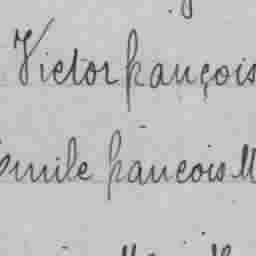 Victor françois
Emile françois M